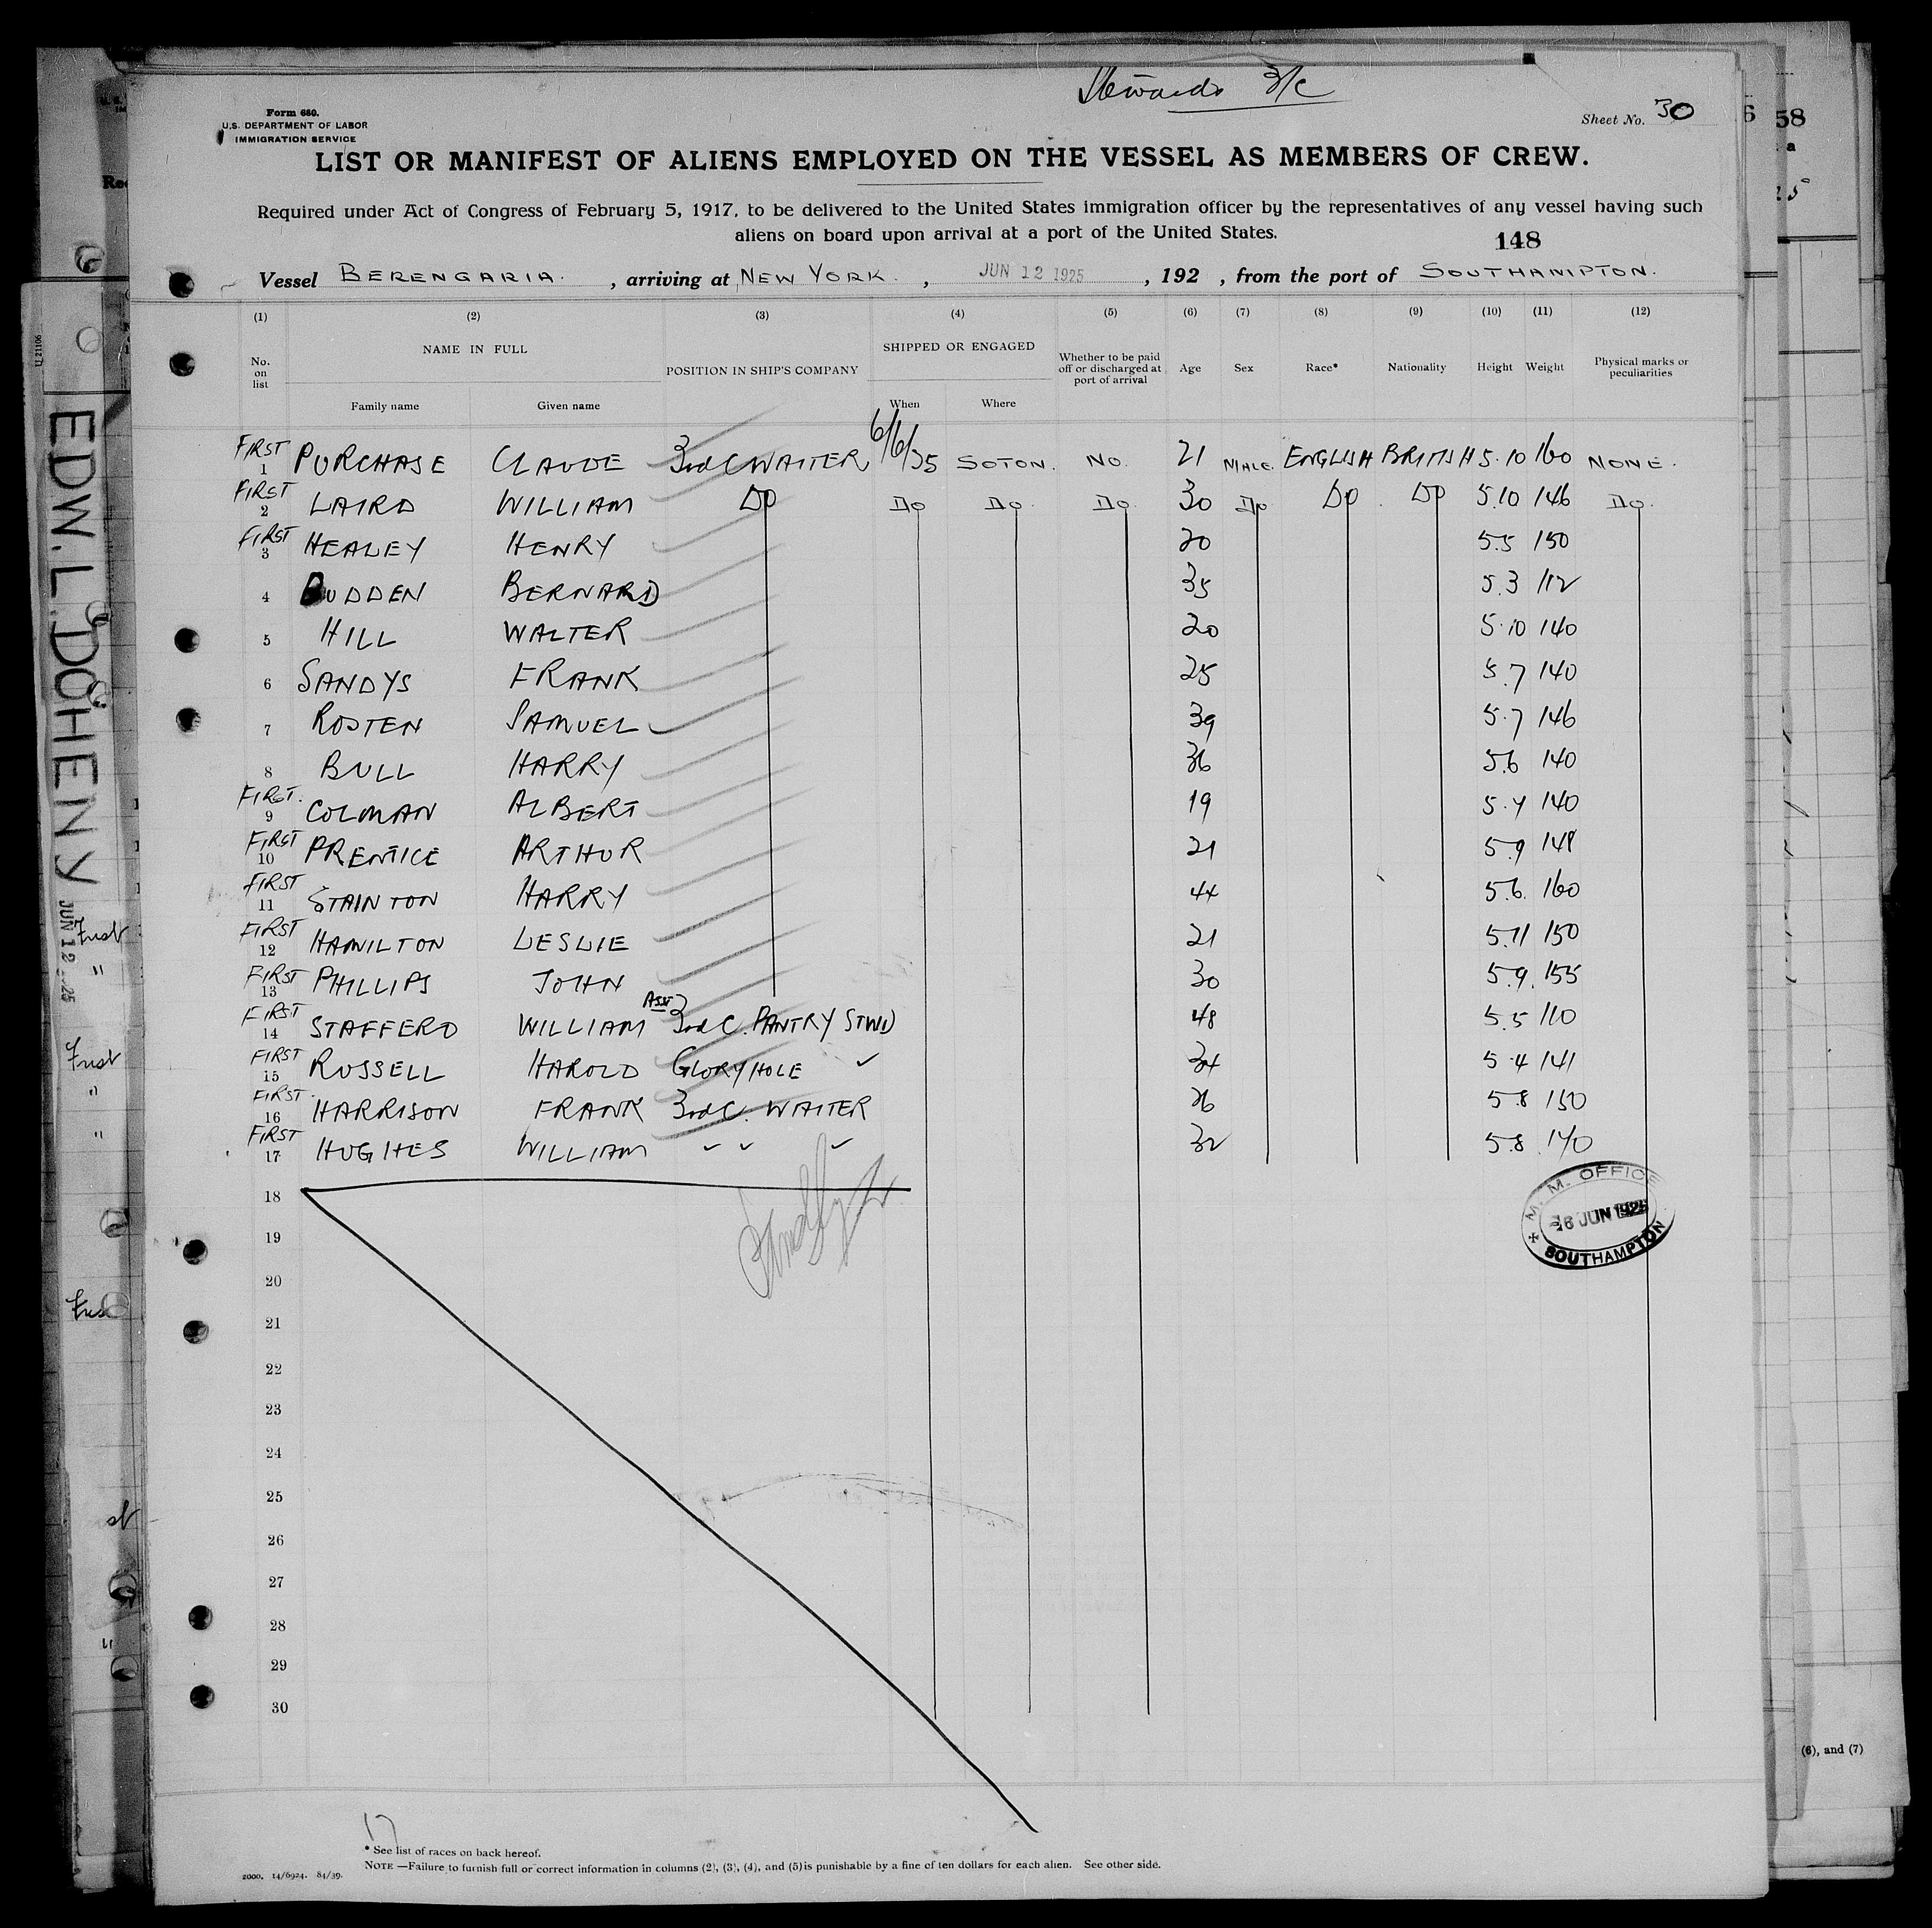 Stewards 3/c
Form 680.
U.S. DEPARTMENT OF LABOR
IMMIGRATION SERVICE
Sheet No. 30
LIST OR MANIFEST OF ALIENS EMPLOYED ON THE VESSEL AS MEMBERS OF CREW.
Required under Act of Congress of February 5, 1917, to be delivered to the United States immigration officer by the representatives of any vessel having such
aliens on board upon arrival at a port of the United States.
148
Vessel BERENGARIA. , arriving at NEW YORK. , JUN 12 1925 , 192 , from the port of SOUTHAMPTON.
(1) (2) (3) (4) (5) (6) (7) (8) (9) (10) (11) (12)
No. on list NAME IN FULL POSITION IN SHIP'S COMPANY SHIPPED OR ENGAGED Whether to be paid off or discharged at port of arrival Age Sex Race* Nationality Height Weight Physical marks or peculiarities
Family name Given name When Where
FIRST 1 PURCHASE CLAUDE 3rd C WAITER 6/6/25 SOTON. NO. 21 MALE. ENGLISH BRITISH 5.10 160 NONE.
FIRST 2 LAIRD WILLIAM DO DO DO. DO. 30 DO DO DO 5.10 146 DO.
FIRST 3 HEALEY HENRY 20 5.5 150
4 BUDDEN BERNARD 35 5.3 112
5 HILL WALTER 20 5.10 140
6 SANDYS FRANK 25 5.7 140
7 ROSTEN SAMUEL 39 5.7 146
8 BULL HARRY 36 5.6 140
FIRST. 9 COLMAN ALBERT 19 5.4 140
FIRST 10 PRENTICE ARTHUR 21 5.9 148
FIRST 11 STAINTON HARRY 44 5.6. 160
FIRST 12 HAMILTON LESLIE 21 5.11 150
FIRST 13 PHILLIPS JOHN 30 5.9. 155
FIRST 14 STAFFERD WILLIAM ASST 3rd C. PANTRY STWD 48 5.5 110
FIRST 15 RUSSELL HAROLD GLORY HOLE 34 5.4 141
FIRST 16 HARRISON FRANK 3rd C. WAITER 26 5.8 150
FIRST 17 HUGHES WILLIAM 32 5.8. 140
18
M. M. OFFICE
6 JUN 1925
SOUTHAMPTON
19
20
21
22
23
24
25
26
27
28
29
30
17
* See list of races on back hereof.
NOTE —Failure to furnish full or correct information in columns (2), (3), (4), and (5) is punishable by a fine of ten dollars for each alien. See other side.
2000. 14/6924. 84/39.
EDW. L. DOHENY
JUN 12 25
U 21106
First
"
First
"
"
58
(6), and (7)